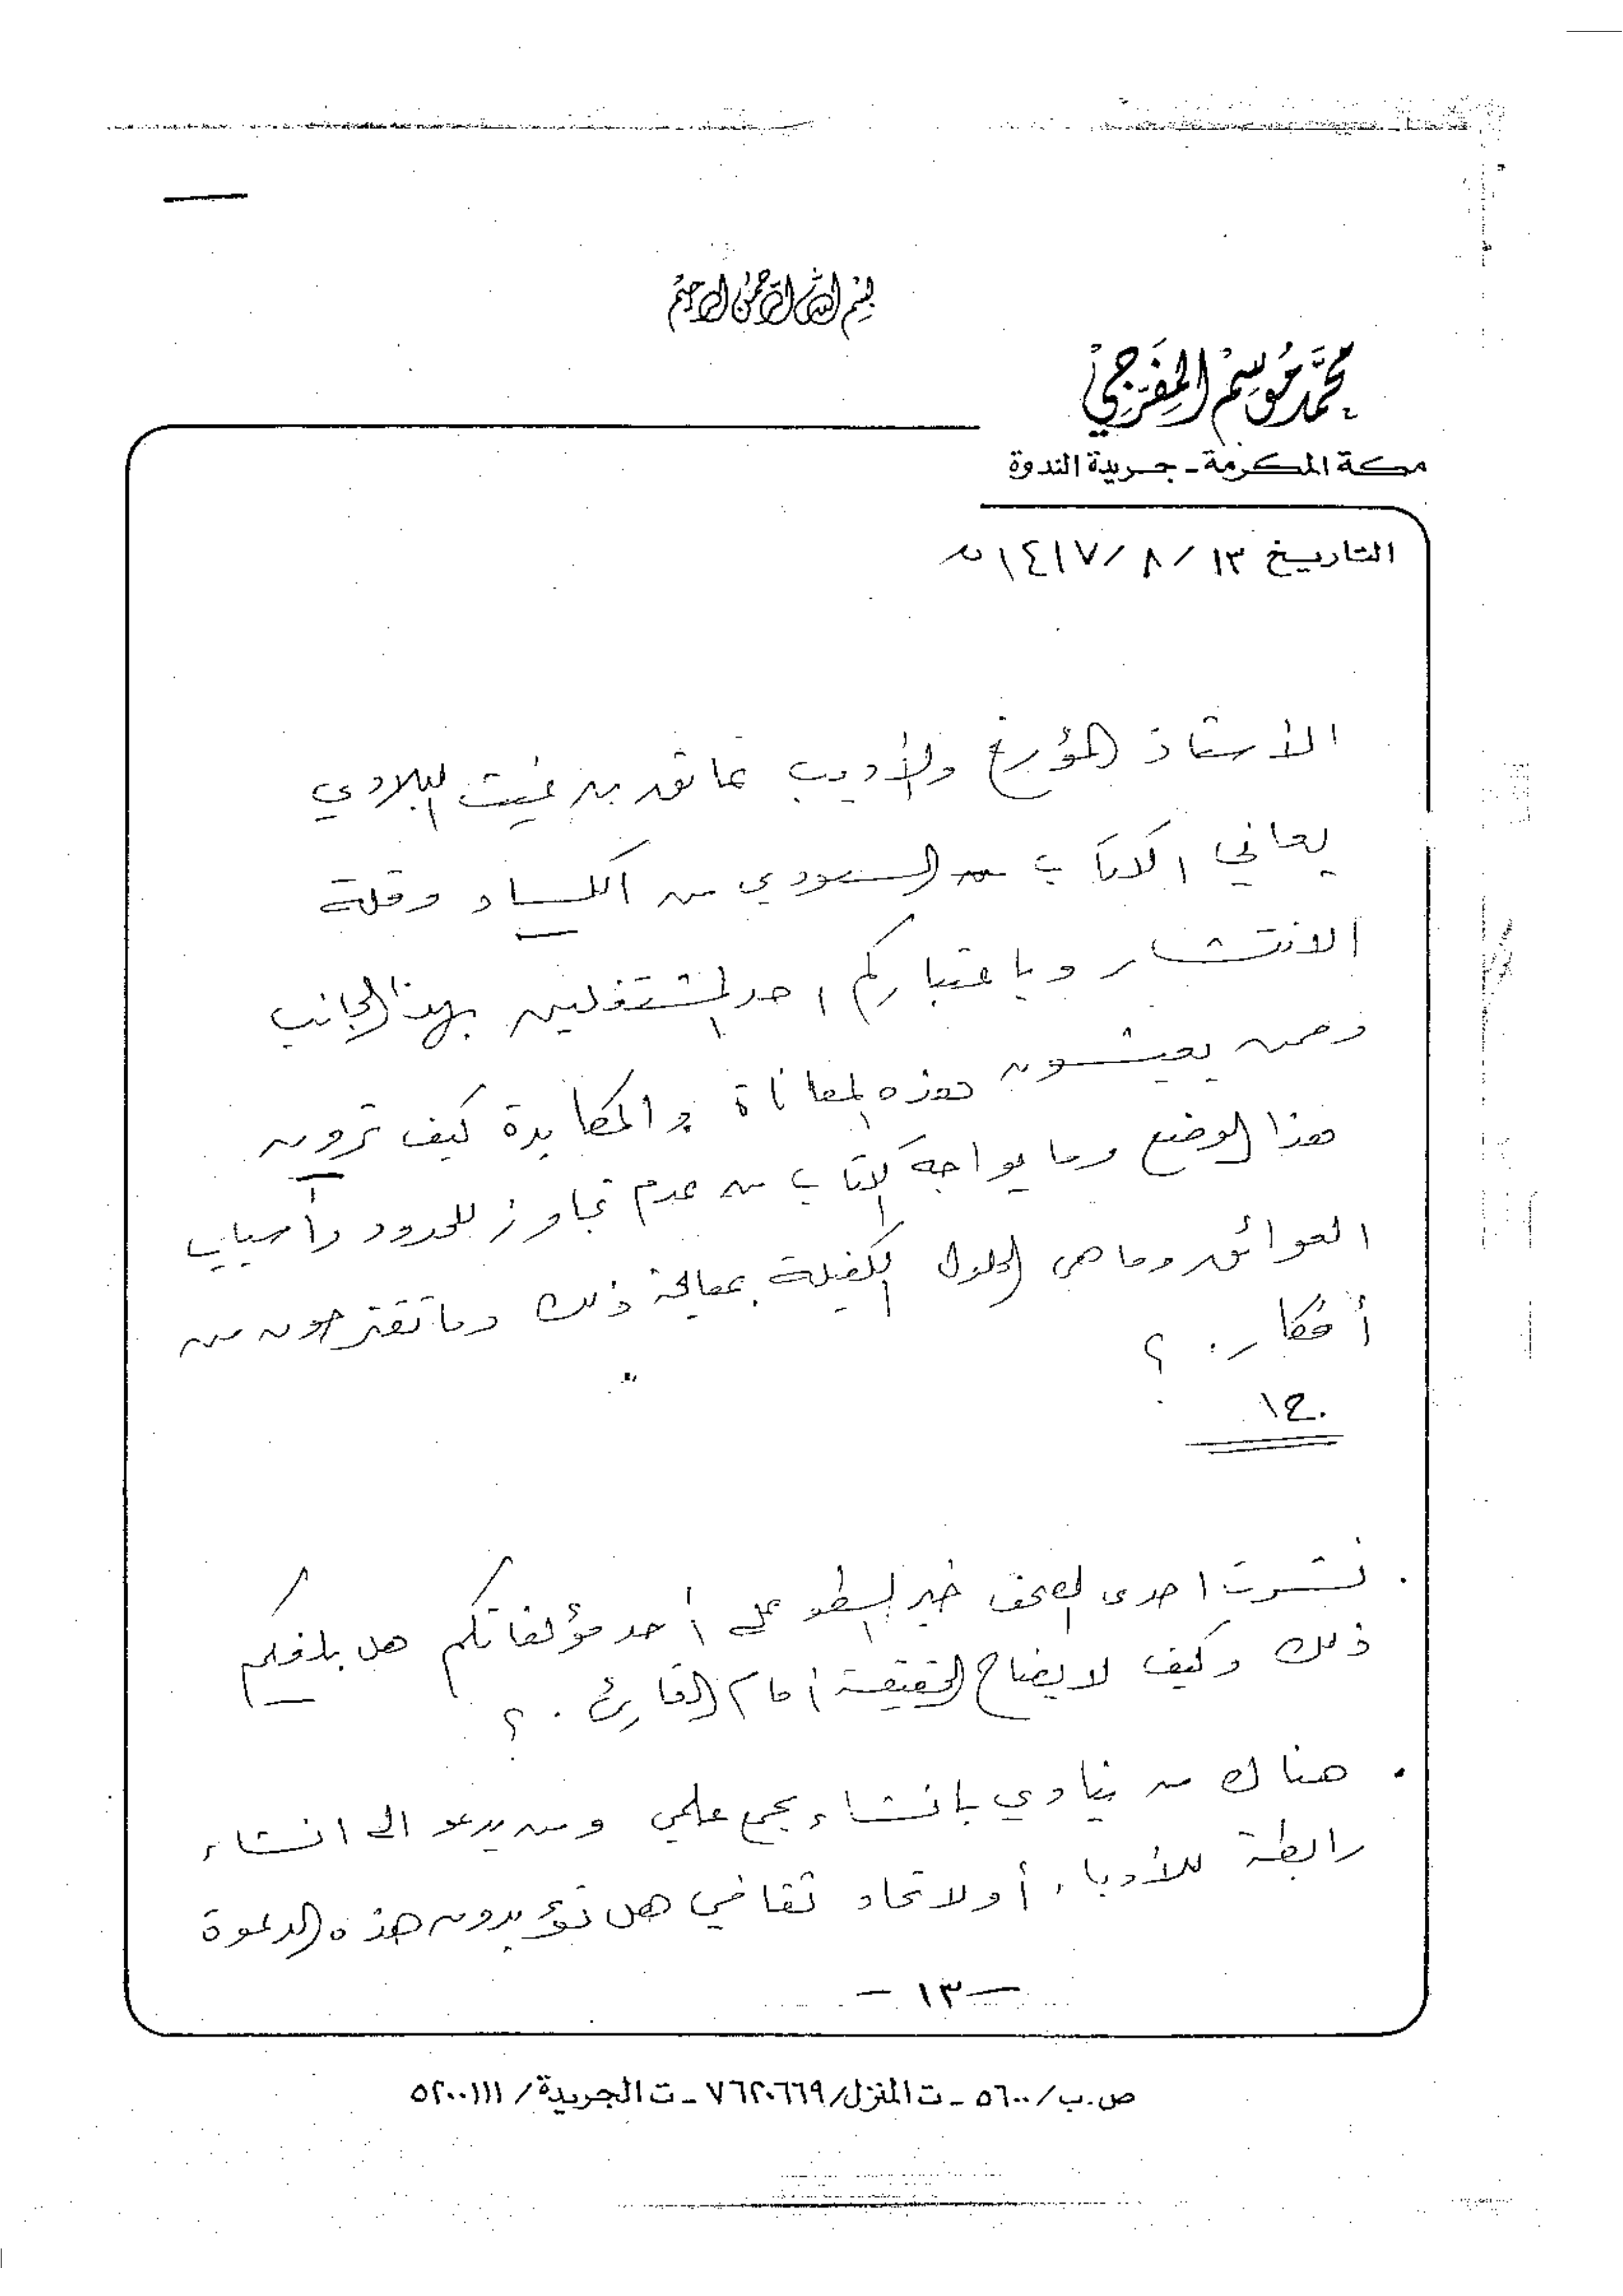 بسم الله الرحمن الرحيم
محمد موسم المفرجي
مكة المكرمة - جريدة الندوة
التاريخ ١٣ / ٨ / ١٤١٧هـ
الأستاذ المؤرخ والأديب عاتق بن غيث البلادي
يعاني الكتاب السعودي من الكساد وقلة
الانتشار وباعتباركم احد المشتغلين بهذا الجانب
وممن يعيشون هذه المعاناة والمكابدة كيف ترون
هذا الوضع وما يواجه الكتاب من عدم تجاوز للحدود وأسباب
العوائق وما هي الحلول الكفيلة بمعالجة ذلك وما تقترحون من
أفكار . ؟
ج١
. نشرت احدى الصحف خبر السطو على أحد مؤلفاتكم هل بلغكم
ذلك وكيف لايضاح الحقيقة أمام القارئ . ؟
. هناك من ينادي بانشاء مجمع علمي ومن يدعو الى انشاء
رابطة للأدباء أو لاتحاد ثقافي هل تؤيدون هذه الدعوة
- ١٣ -
ص.ب/٥٦٠٠ - ت المنزل/٧٦٢٠٦٦٩ - ت الجريدة/٥٢٠٠١١١